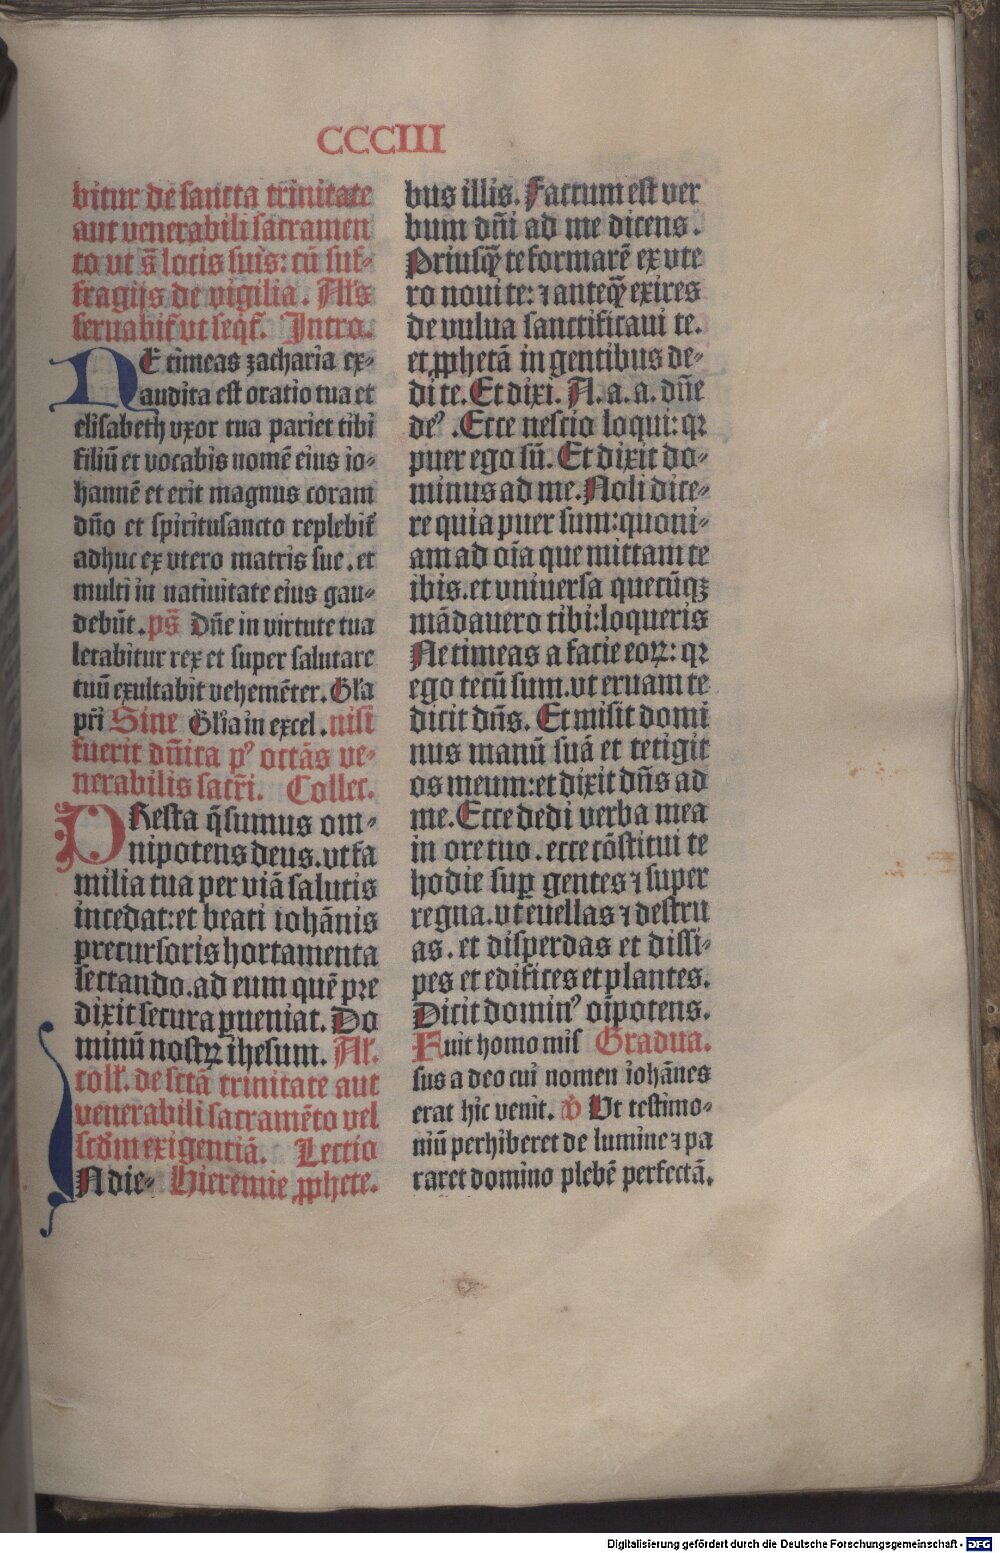 CCCIII
bitur de sancta trinitate
aut venerabili sacramen
to ut s̄ locis suis: cū suf⸗
fragijs de vigilia. Al's
seruabit᷑ ut seqt᷑. Intro.
NE timeas zacharia ex⸗
audita est oratio tua et
elisabeth vxor tua pariet tibi
filiū et vocabis nomē eius io⸗
hannē et erit magnus coram
dn̄o et spiritusancto replebit᷑
adhuc ex vtero matris sue. et
multi in natiuitate eius gau⸗
debūt. ps̄ Dn̄e in virtute tua
letabitur rex et super salutare
tuū exultabit vehemēter. Gl'a
pr̄i Sine Gl'ia in excel. nisi
fuerit dn̄ica pꝰ octās ve⸗
nerabilis sacr̄i. Collec.
PResta q̄sumus om⸗
nipotens deus. vt fa
milia tua per viā salutis
incedat: et beati iohānis
precursoris hortamenta
sectando. ad eum quē pre
dixit secura ꝑueniat. Do
minū nostꝝ ihesum. Al'.
coll'. de sctā trinitate aut
venerabili sacramēto vel
scd̄m exigentiā. Lectio
IN die⸗ Hieremie ꝓphete.
bus illis. Factum est ver
bum dn̄i ad me dicens.
Priusq̄ꝫ te formarē ex vte
ro noui te: ⁊ anteq̄ꝫ exires
de vulua sanctificaui te.
et ꝓphetā in gentibus de⸗
di te. Et dixi. A. a. a. dn̄e
deꝰ. Ecce nescio loqui: qꝛ
puer ego sū. Et dixit do⸗
minus ad me. Noli dice⸗
re quia puer sum: quoni⸗
am ad oīa que mittam te
ibis. et vniuersa quecūqꝫ
mādauero tibi: loqueris
Ne timeas a facie eoꝝ: qꝛ
ego tecū sum. vt eruam te
dicit dn̄s. Et misit domī
nus manū suā et tetigit
os meum: et dixit dn̄s ad
me. Ecce dedi verba mea
in ore tuo. ecce cōstitui te
hodie suꝑ gentes ⁊ super
regna. vt euellas ⁊ destru
as. et disperdas et dissi⸗
pes et edifices et plantes.
Dicit dominꝰ oīpotens.
Fuit homo mis Gradua.
sus a deo cui nomen iohānes
erat hic venit. ꝟ Vt testimo⸗
niū perhiberet de lumine ⁊ pa
raret domino plebē perfectā.
Digitalisierung gefördert durch die Deutsche Forschungsgemeinschaft - DFG